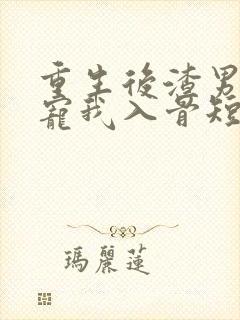 重生後渣男
寵我入骨短
瑪麗蓮